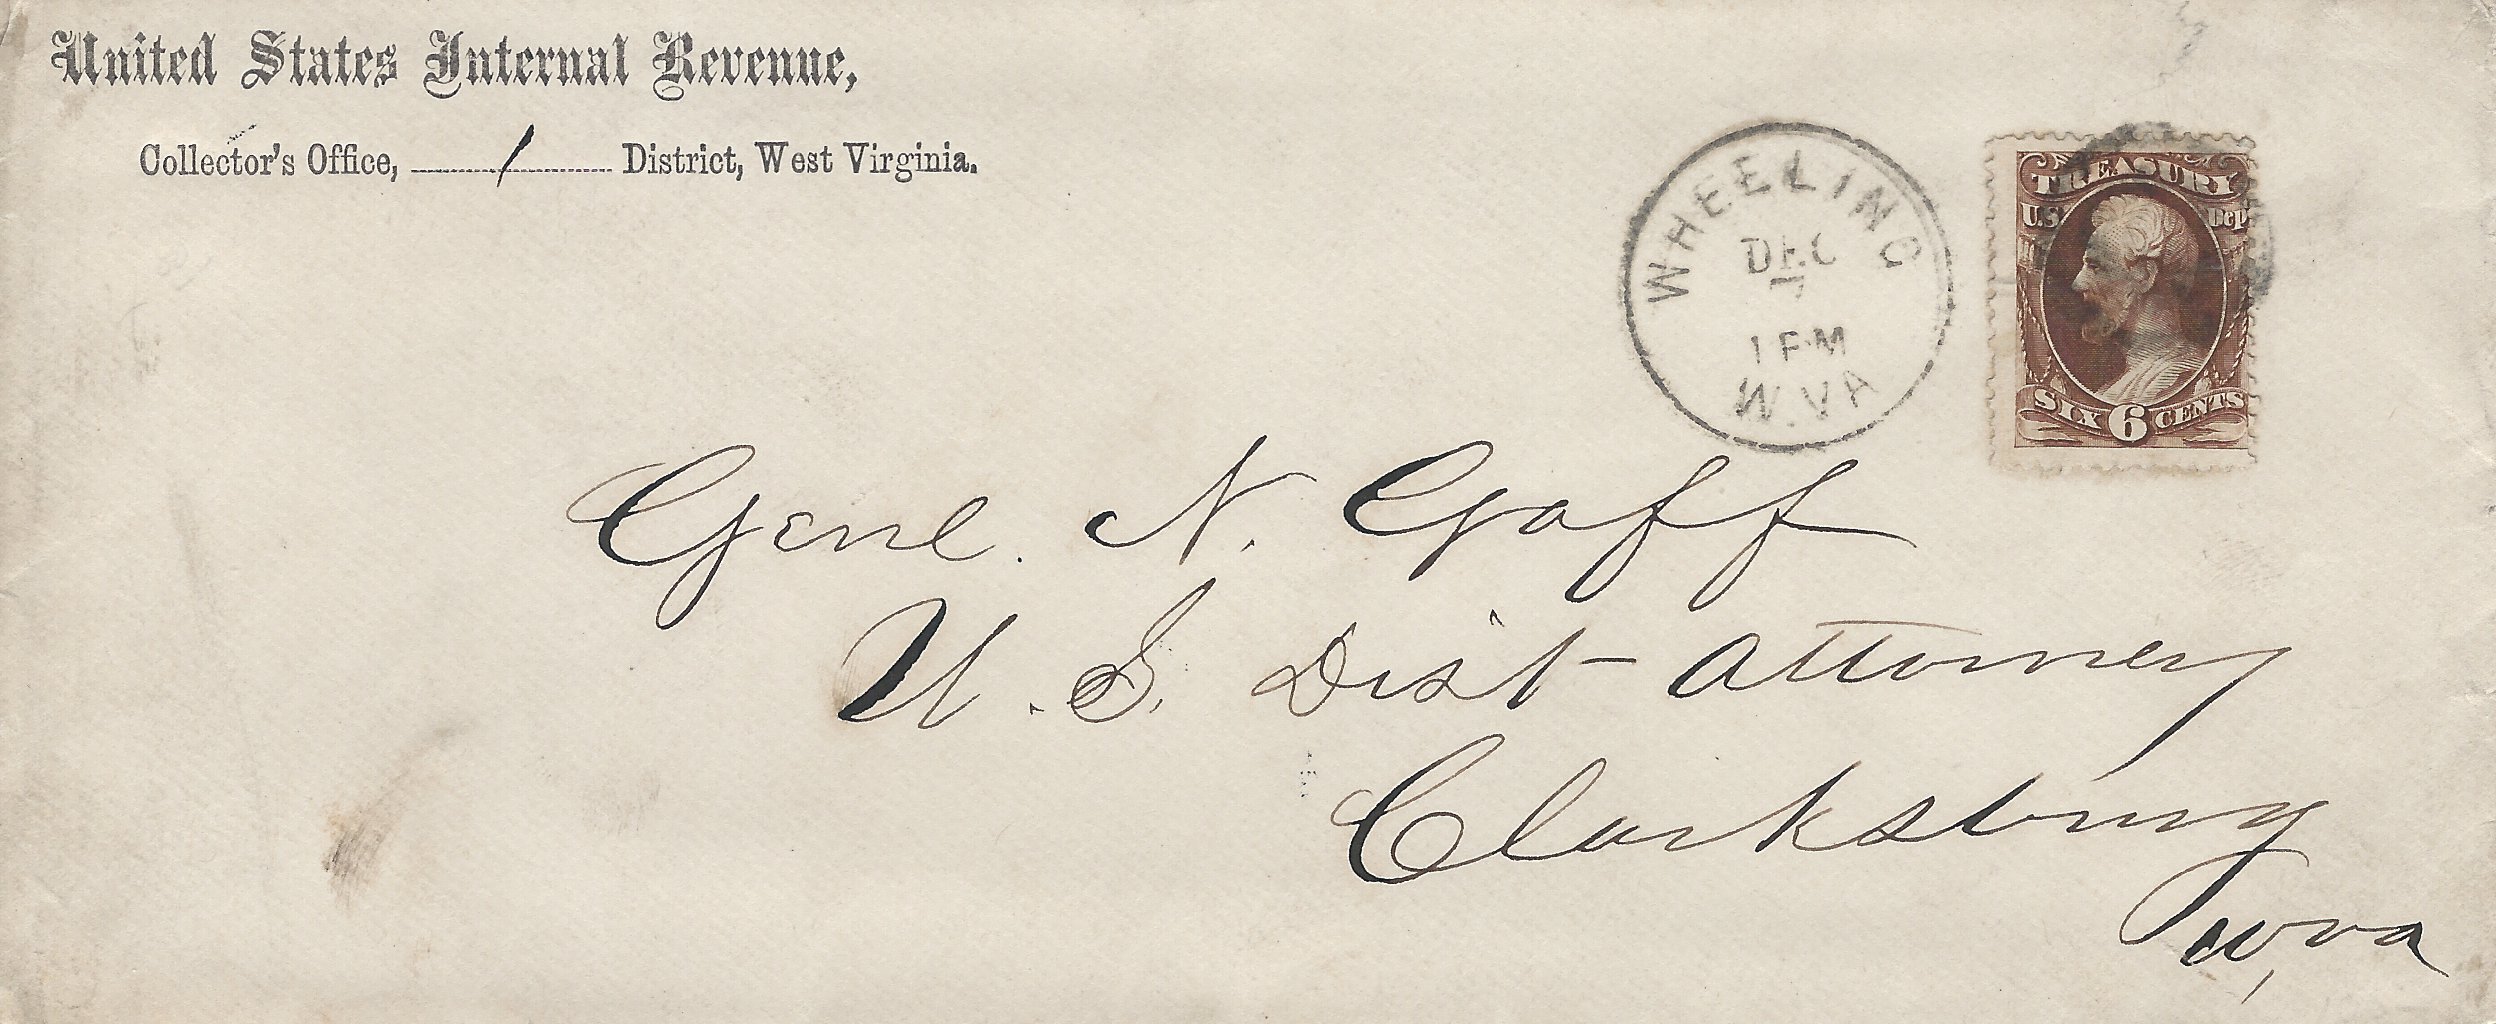 United States Internal Revenue,
Collector's Office, 1 District, West Virginia.
WHEELING
DEC
7
1 PM
W.VA
TREASURY
U.S. Dept
SIX 6 CENTS
Genl. N. Goff
U.S. Dist Attorney
Clarksburg
W,Va